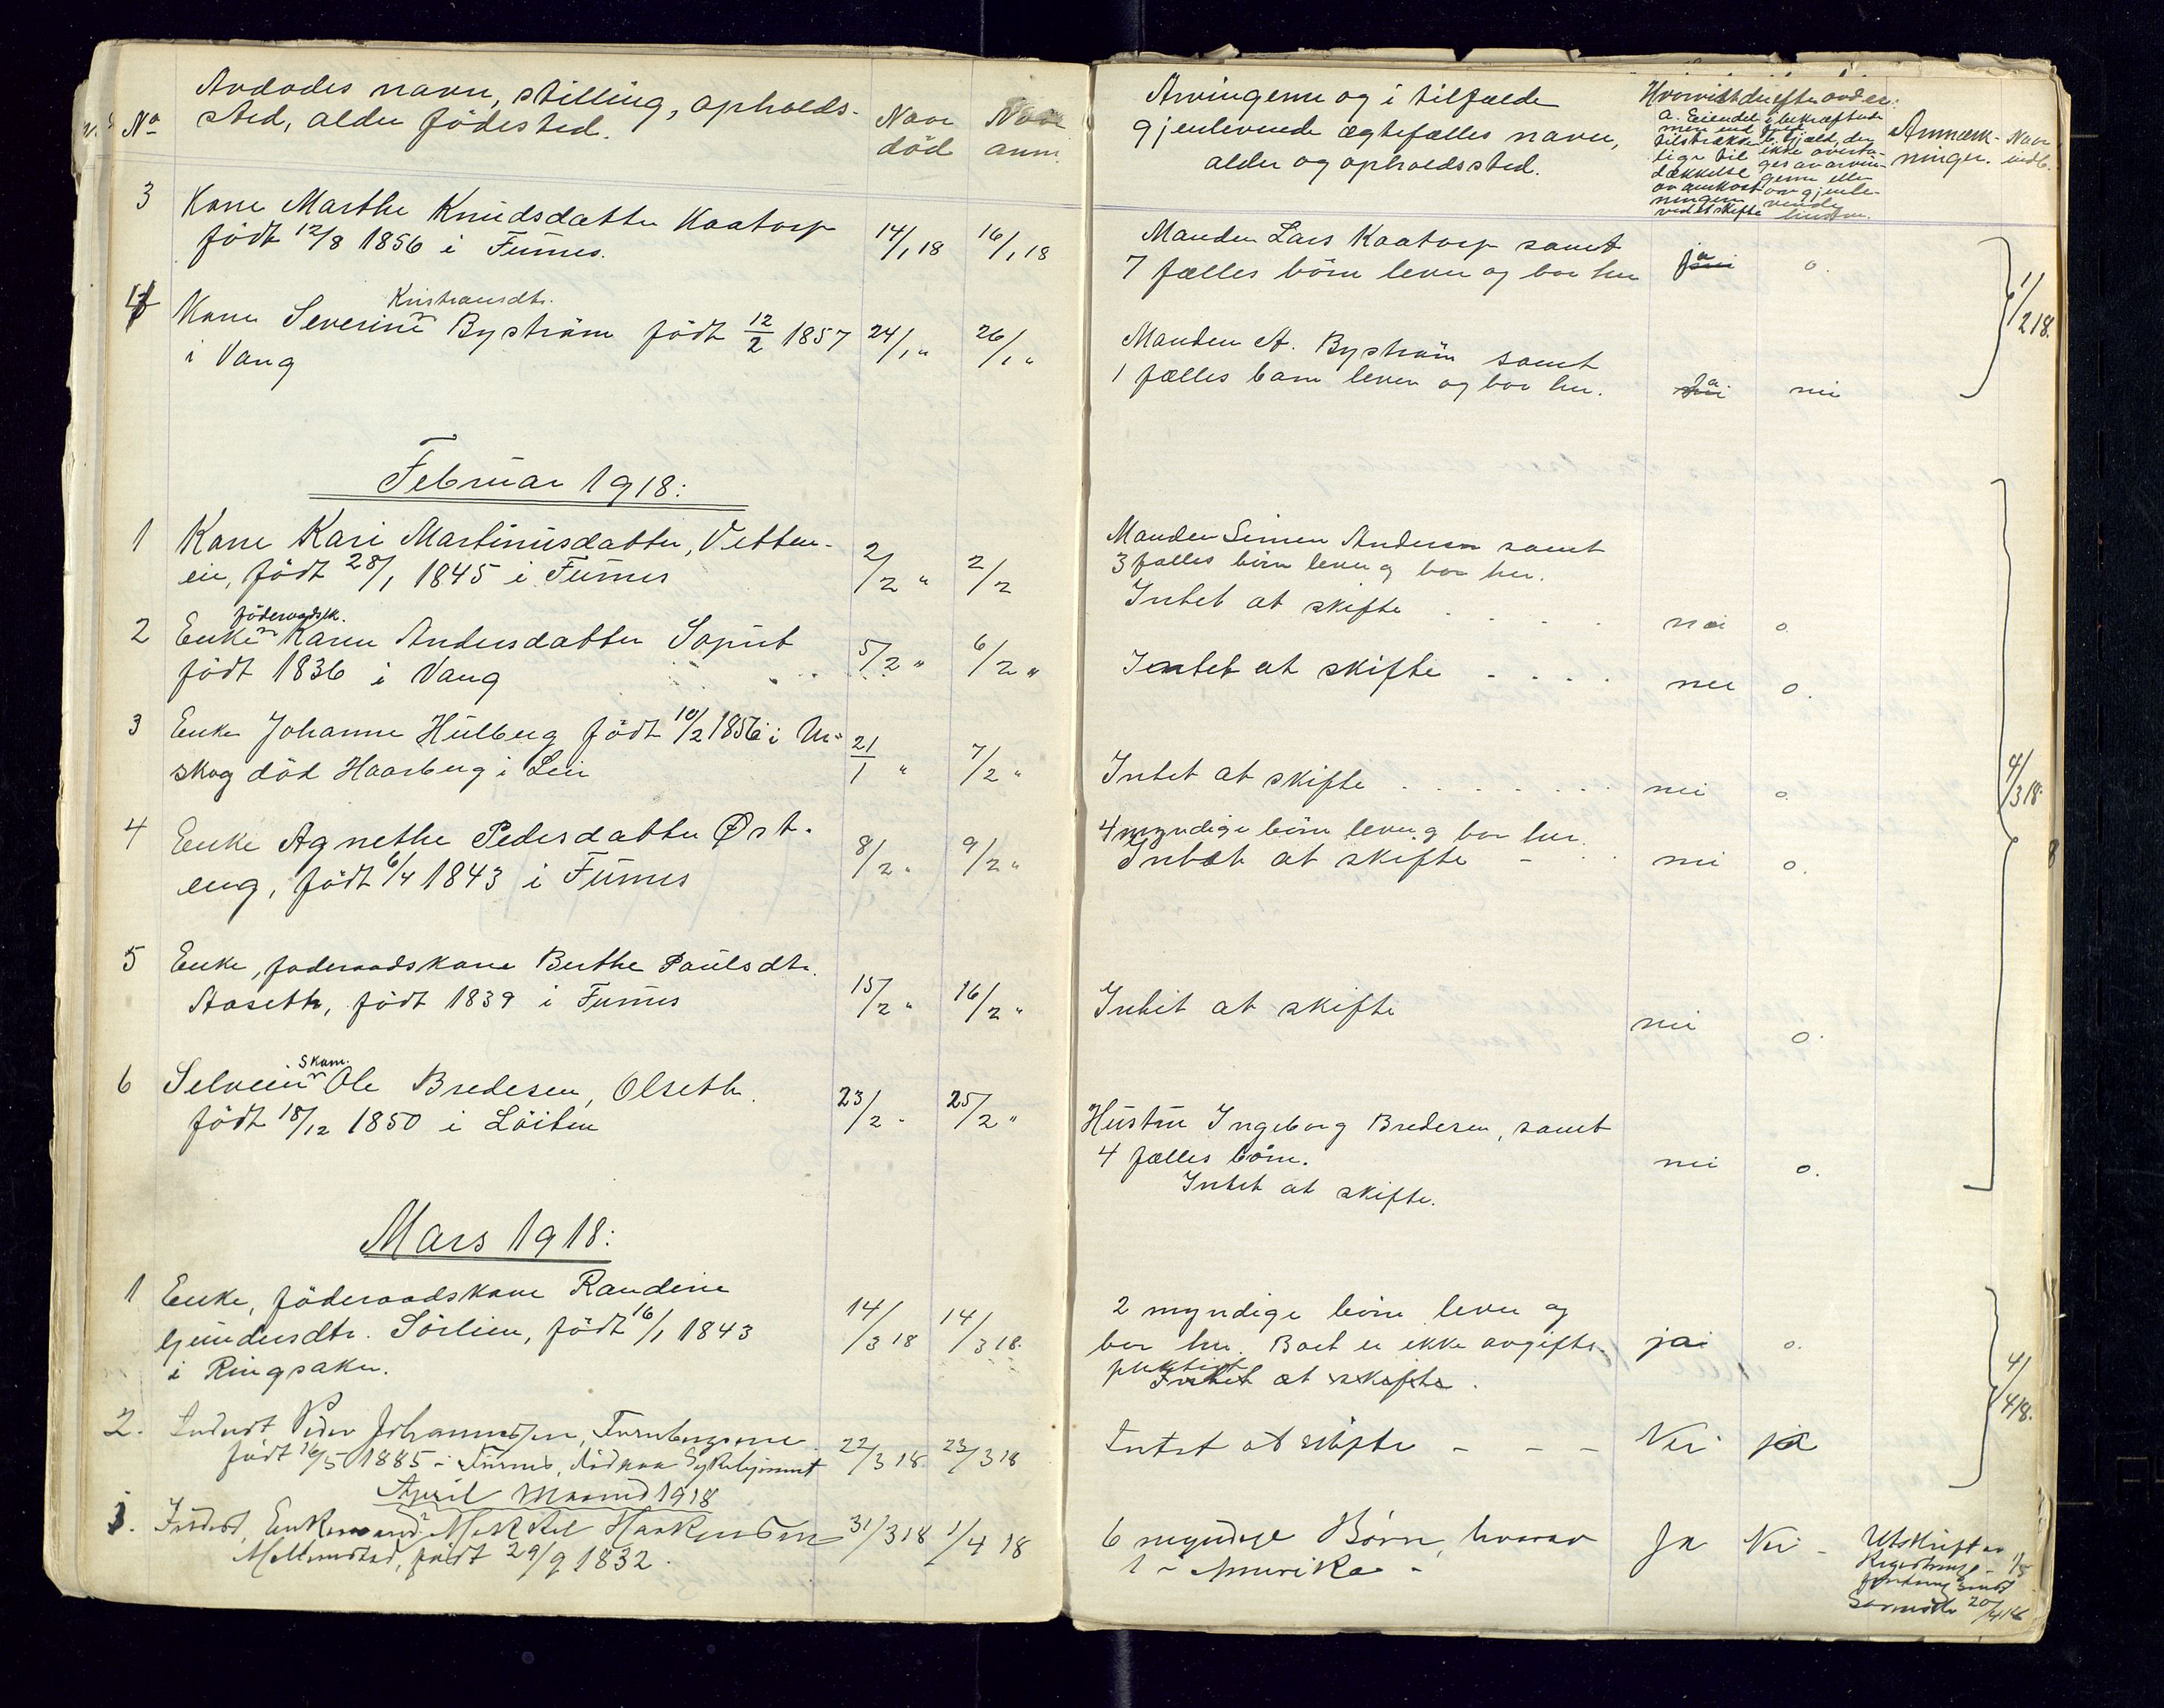 No
Avdødes navn, stilling, opholds-
sted, alder fødested.
Naar
død
Naar
anm.
Arvingerne og i tilfælde
gjenlevende ægtefælles navn,
alder og opholdssted.
Hvorvidt der efter avdøde er:
a. Eiendel
mer end
tilstrække-
lige til
dækkelse
av omkost-
ningerne
ved et skifte
b. bekræftede
gjæld, der
ikke overta-
ges av arvin-
gerne eller
av gjenle-
vende
hustru.
Anmærk-
ninger.
Naar
indb.
3 Kone Marthe Knudsdatter Kaatorp
født 12/8 1856 i Furnes.
14/1 18 16/1 18
Manden Lars Kaatorp samt
7 fælles børn lever og bor her
ja o.
4 Kone Severine Kristiansdtr. Byström født 12/2 1857
i Vang
24/1 " 26/1 "
Manden A. Byström samt
1 fælles barn lever og bor her.
ja nei
1/2 18.
Februar 1918:
1 Kone Kari Martinusdatter, Vetten-
eie, født 28/1 1845 i Furnes
2/2 " 2/2
Manden Simen Andersen samt
3 fælles børn lever og bor her.
Intet at skifte . . . .
nei o.
2 Enke føderaadsk. Karen Andersdatter Soput
født 1836 i Vang
5/2 " 6/2 "
Intet at skifte . . . .
nei o.
3 Enke Johanne Hulberg født 10/2 1856 i Ur-
skog død Haarberg i Leir
21/1 " 7/2 "
Intet at skifte . . . . . . .
nei o.
4/3 18.
4 Enke Agnethe Pedersdatter Øst-
eng, født 6/4 1843 i Furnes
8/2 " 9/2 "
4 myndige børn lever og bor her.
Intet at skifte
nei o.
5 Enke, føderaadskone Berthe Paulsdtr.
Aaseth, født 1839 i Furnes
15/2 " 16/2 "
Intet at skifte
nei o.
6 Selveier Skom. Ole Bredesen, Olseth.
født 18/12 1850 i Löiten
23/2 " 25/2 "
Hustru Ingeborg Bredesen, samt
4 fælles børn.
Intet at skifte.
nei o.
Mars 1918:
1 Enke, føderaadskone Randine
Gundersdtr. Sörlien, født 16/1 1843
i Ringsaker.
14/3 18 14/3 18.
2 myndige børn lever og
bor her. Boet er ikke avgifts-
pliktigt
Intet at skifte.
ja o.
4/4 18.
2. Inderst Peder Johannessen,
født 16/5 1885 i Furnes, død paa Sykehjemmet
22/3 18 23/3 18
Intet at skifte - - -
Nei ja
April Maaned 1918
1. Inderst, Enkemand Mikkel Haakensen
født 29/9 1832.
31/3 18 1/4 18
6 myndige Børn, hvorav
1 - Amerika -
Ja Nei -
Utskrift av
sendt
20/4 18